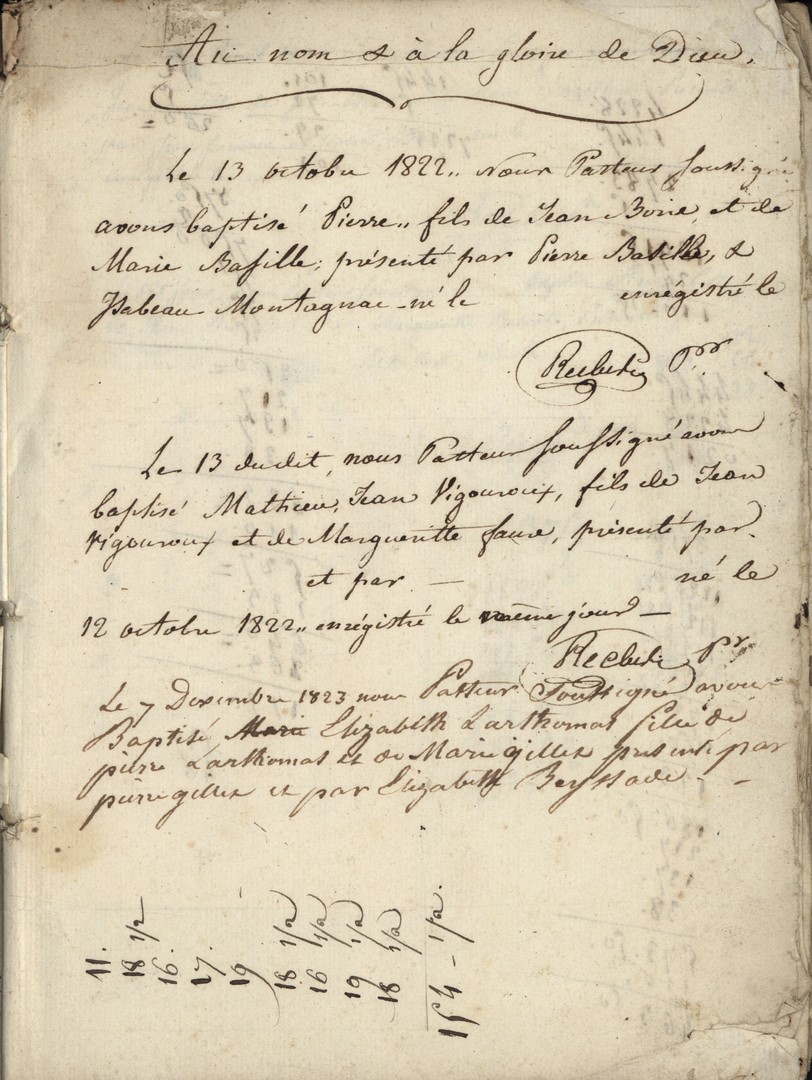 Au nom & à la gloire de Dieu.
Le 13 octobre 1822,, Nous Pasteur Soussigné
avons baptisé Pierre,, fils de Jean Borie et de
Marie Basille; présenté par Pierre Basille, &
Isabeau Montagnac né le enrégistré le
Pr
Le 13 dudit, nous Pasteur soussigné avons
baptisé Mathieu, Jean Vigouroux, fils de Jean
Vigouroux et de Margueritte faure, présenté par
et par — né le
12 octobre 1822,, enrégistré le même jour —
Pr
Le 7 Dexembre 1823 nous Pasteur Soussigné avons
Baptisé Marie Elizabeth Larthomas fille de
pierre Larthomas et de Marie gilles presenté par
pierre gilles et par Elizabeth Beyssade. —
11.
18 1/2
16.
17.
19
18 1/2
16 1/2
19 1/2
18 1/2
154 - 1/2.